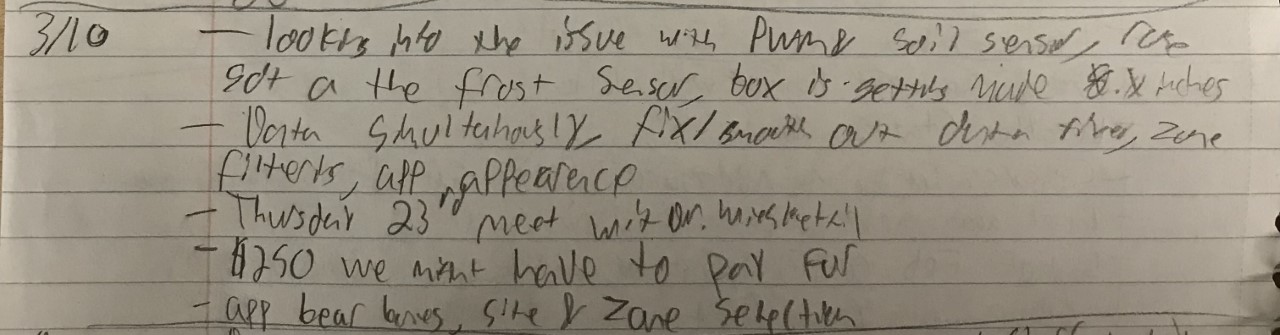 3/10 — looking into the issue with Pump & soil sensor,
got a the frost sensor, box is getting made inches
— Data simultaniously, fix/smooth out data times, zone
filters, app appearence
— Thursday 23rd meet with Dr.
— $250 we might have to pay for
— app bear bones, site & zone selection